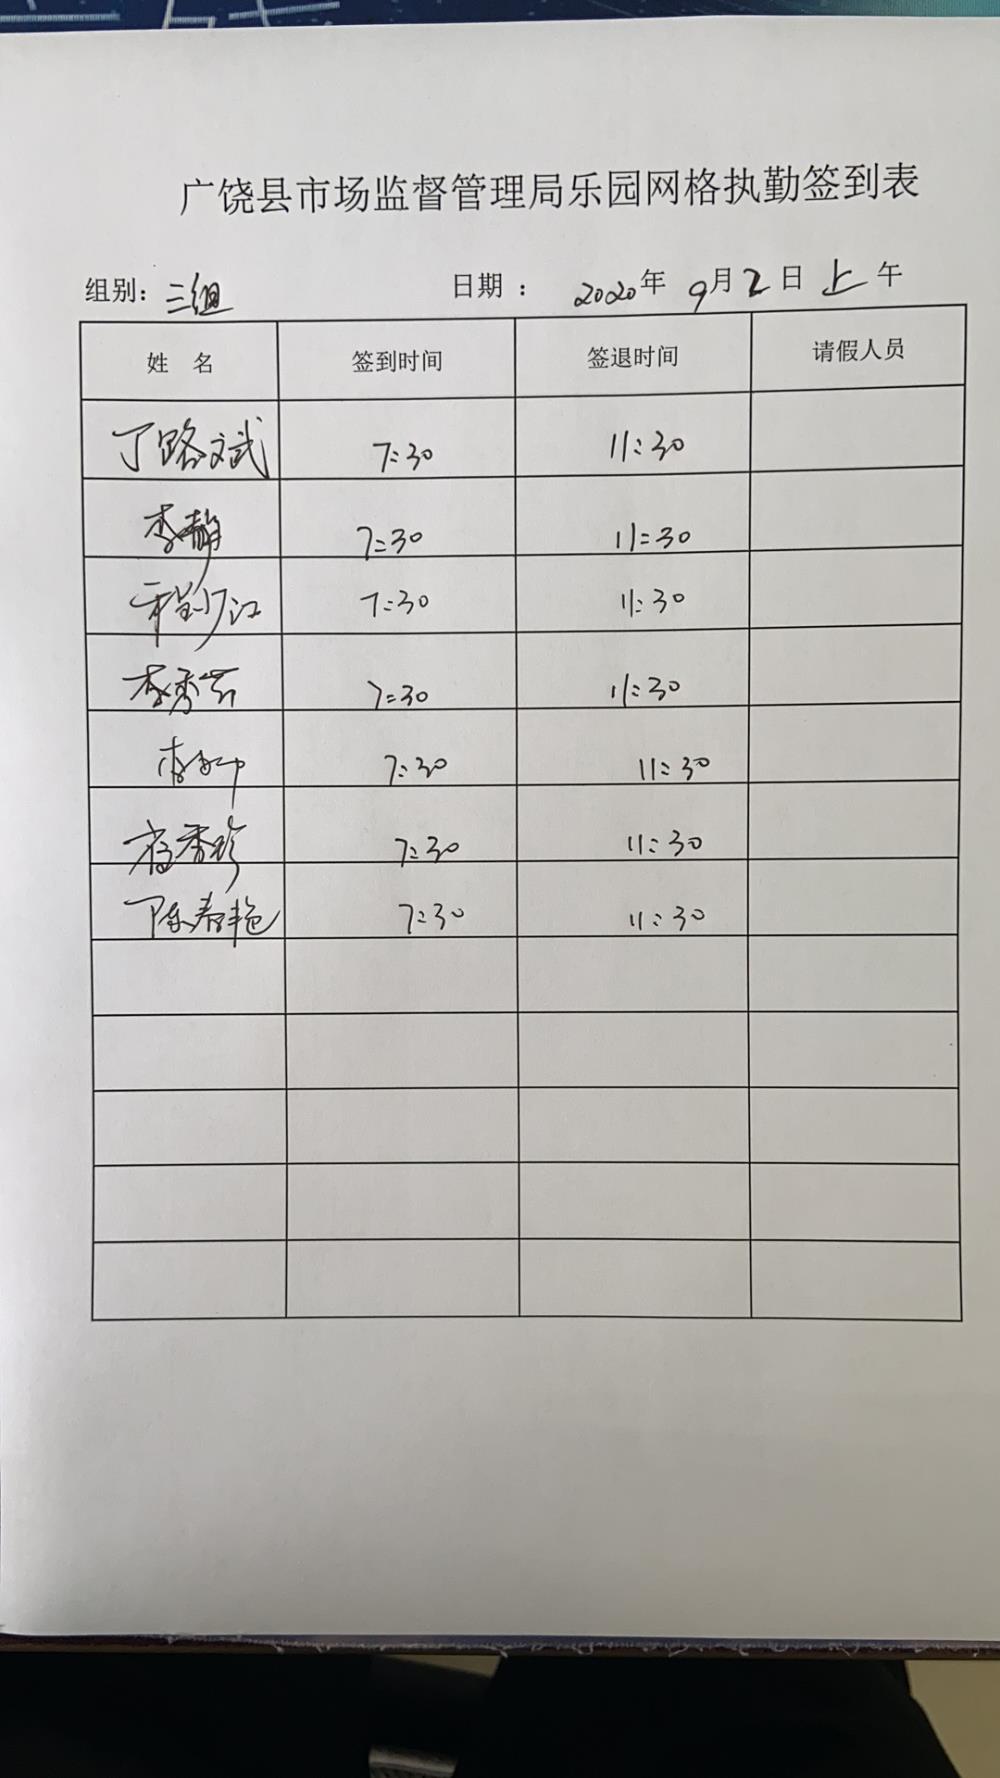 广饶县市场监督管理局乐园网格执勤签到表
组别: 三组 日期 : 2020年 9月2日 上午
姓 名 签到时间 签退时间 请假人员
丁路文武 7:30 11:30
李静 7:30 11:30
7:30 11:30
李秀芳 7:30 11:30
7:30 11:30
7:30 11:30
陈春艳 7:30 11:30